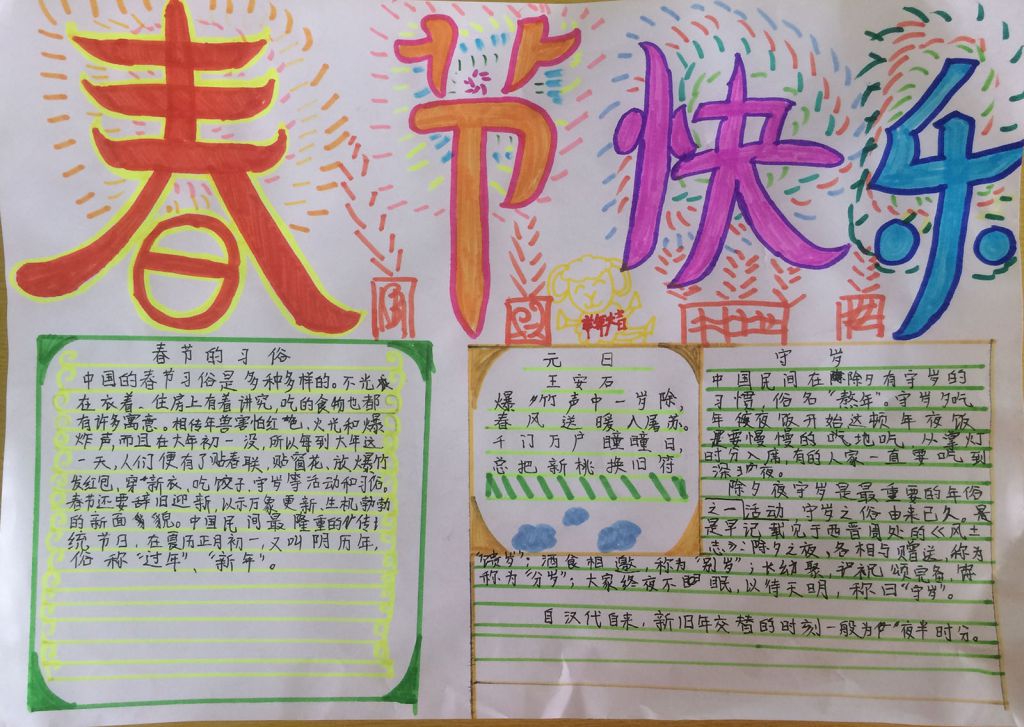 春节快乐
羊年大吉
春节的习俗
中国的春节习俗是多种多样的。不光
在衣着、住房上有着讲究,吃的食物也都
有许多寓意。相传年兽害怕红色,火光和爆
炸声,而且在大年初一没,所以每到大年这
一天,人们便有了贴春联,贴窗花、放爆竹
发红包,穿新衣、吃饺子、守岁等活动和习俗。
春节还要辞旧迎新,以示万象更新、生机勃勃
的新面貌。中国民间最隆重的传
统节日,在夏历正月初一,又叫阴历年,
俗称“过年”、“新年”。
元日
王安石
爆竹声中一岁除,
春风送暖入屠苏。
千门万户瞳瞳日,
总把新桃换旧符
守岁
中国民间在除夕有守岁的
习惯,俗名“熬年”。守岁夕吃
年夜饭开始这顿年夜饭
要慢慢的吃地吃,从掌灯
时分入席,有的人家一直要吃到
深夜。
除夕夜守岁是最重要的年俗
之一活动 守岁之俗由来已久。最
早记载见于西晋周处的《风土
志》:除夕之夜,各相与赠送,称为
“馈岁”;酒食相邀,称为“别岁”;长幼聚,祝颂完备,
称为“分岁”;大家终夜不眠,以待天明,称曰“守岁”。
自汉代自来,新旧年交替的时刻一般为夜半时分。